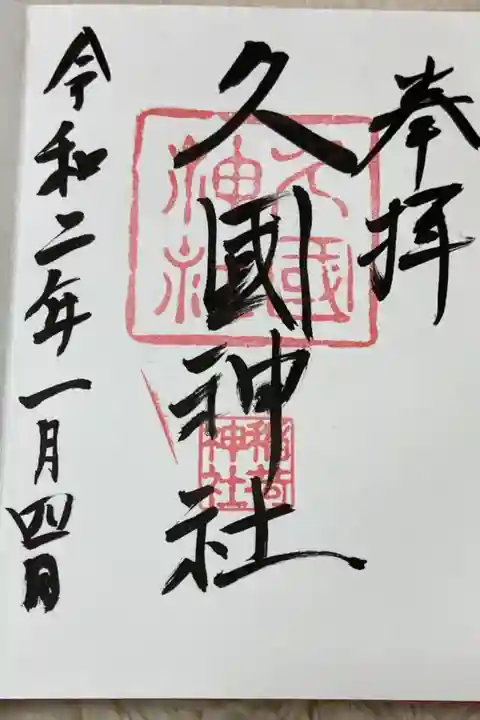 奉拝
久國神社
久國神社
稲荷神社
令和二年一月四日